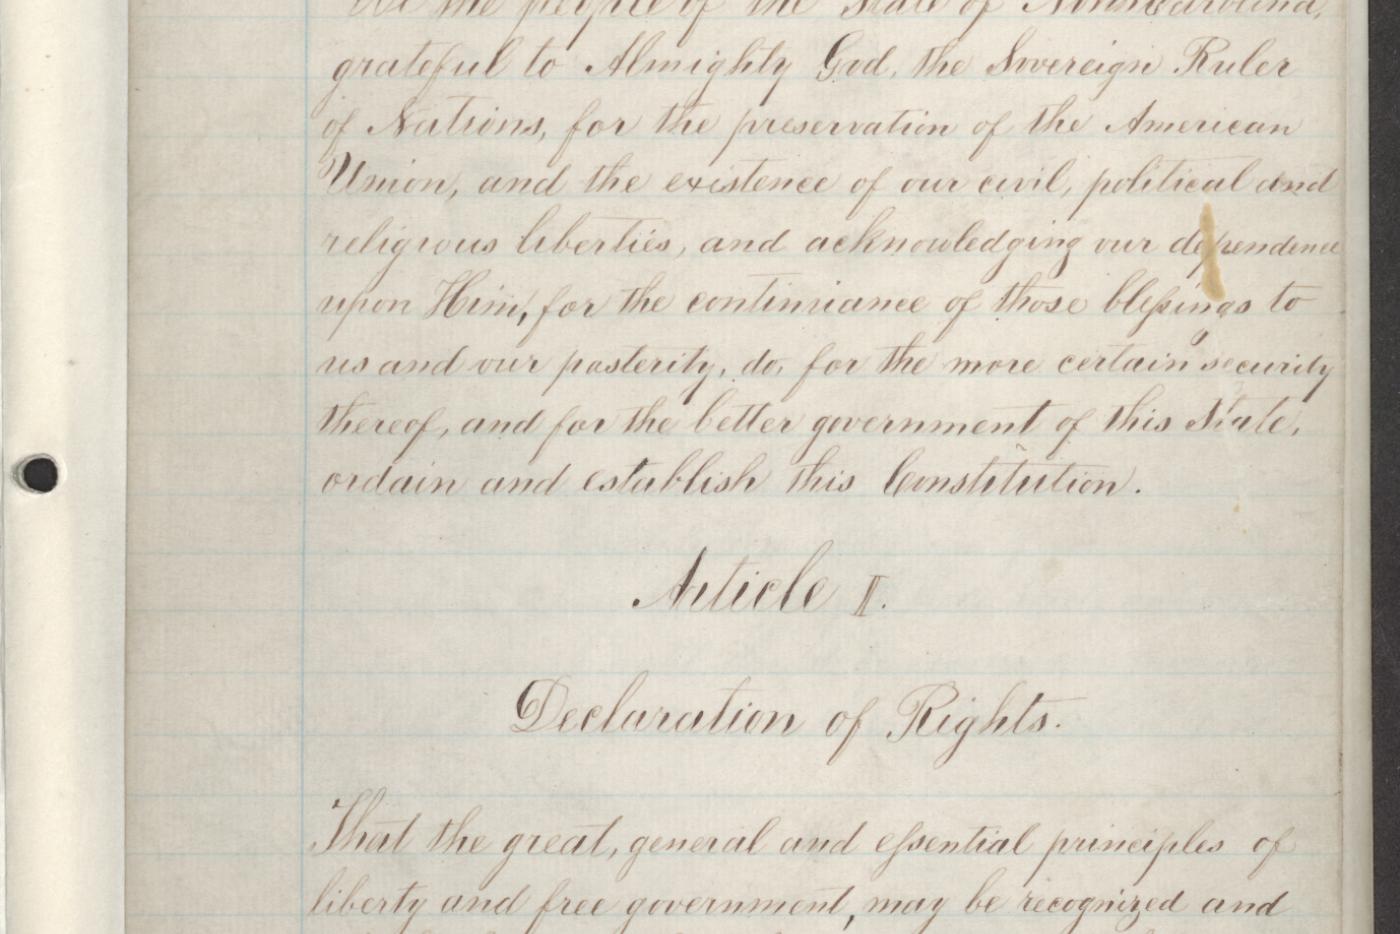 We the people of the State of North Carolina,
grateful to Almighty God, the Sovereign Ruler
of Nations, for the preservation of the American
Union, and the existence of our civil, political and
religious liberties, and acknowledging our dependence
upon Him, for the continuance of those blessings to
us and our posterity, do, for the more certain security
thereof, and for the better government of this State,
ordain and establish this Constitution.
Article I.
Declaration of Rights.
That the great, general and essential principles of
liberty and free government, may be recognized and